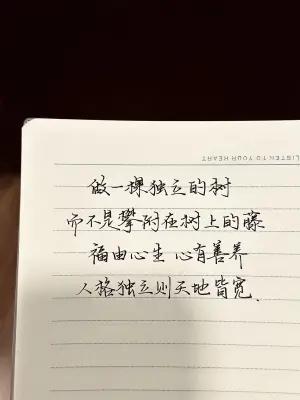 LISTEN TO YOUR HEART
做一棵独立的树
而不是攀附在树上的藤
福由心生 心有善养
人格独立则天地皆宽.